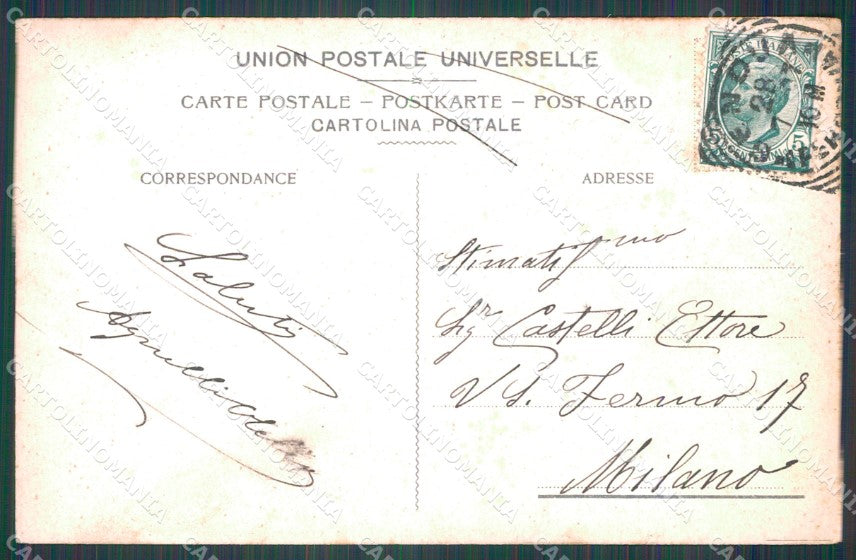 UNION POSTALE UNIVERSELLE
CARTE POSTALE – POSTKARTE – POST CARD
CARTOLINA POSTALE
CORRESPONDANCE
Saluti
ADRESSE
Stimatis^mo
Sig^r Castelli Ettore
V S. Fermo 17
Milano
CARTOLINOMANIA